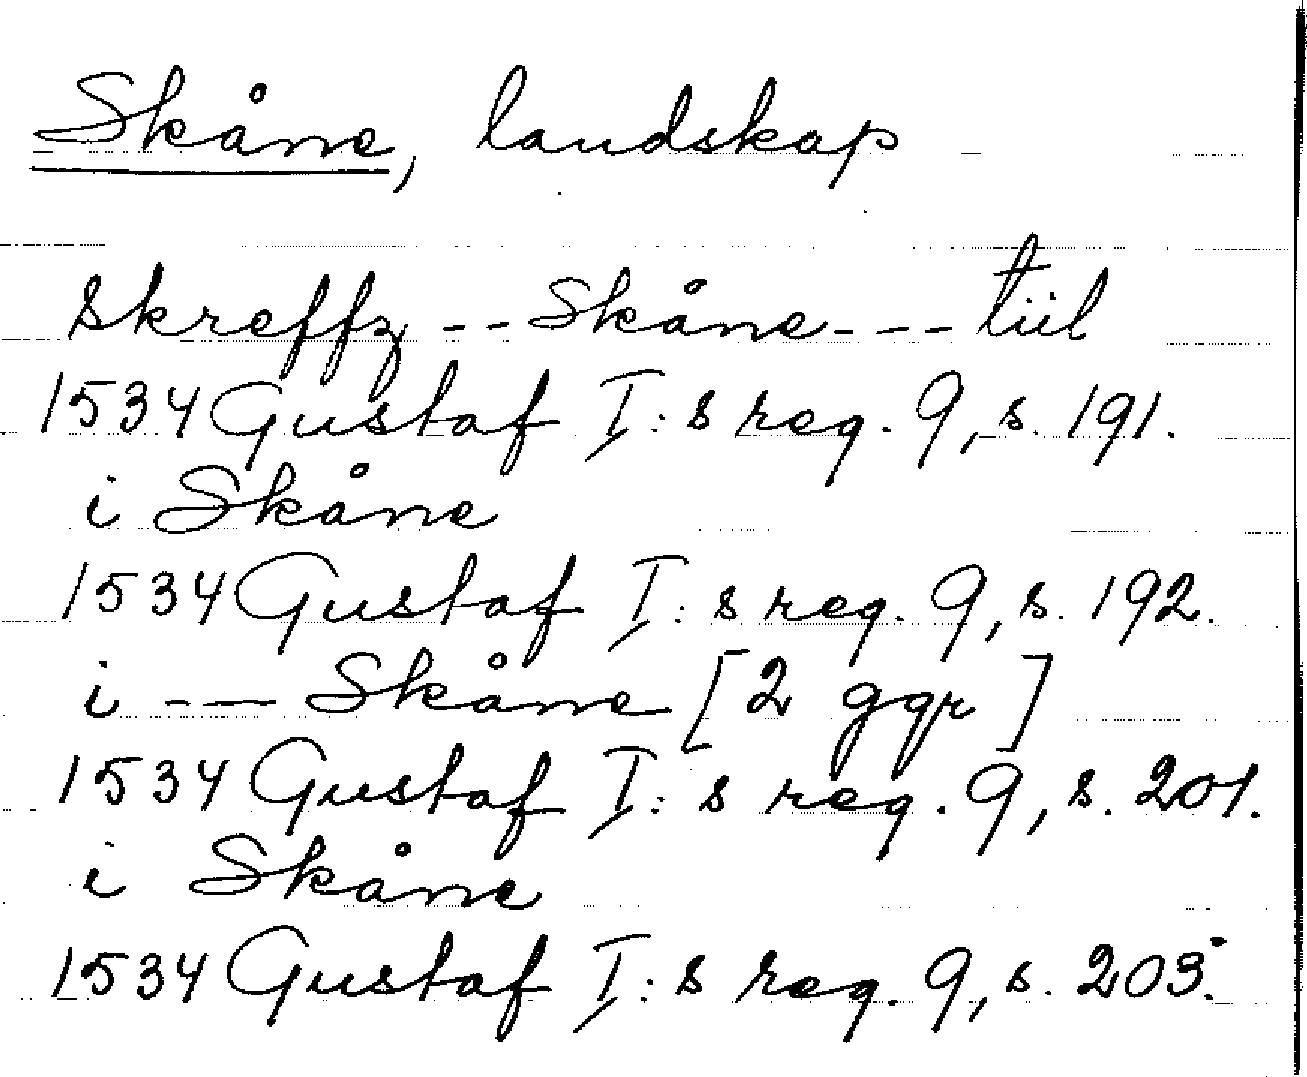 Skåne, landskap
skreffz -- Skåne --- tiil
1534 Gustaf I:s reg. 9, s. 191.
i Skåne
1534 Gustaf I:s reg. 9, s. 192.
i --- Skåne [2 ggr]
1534 Gustaf I:s reg. 9, s. 201.
i Skåne
1534 Gustaf I:s reg. 9, s. 203.